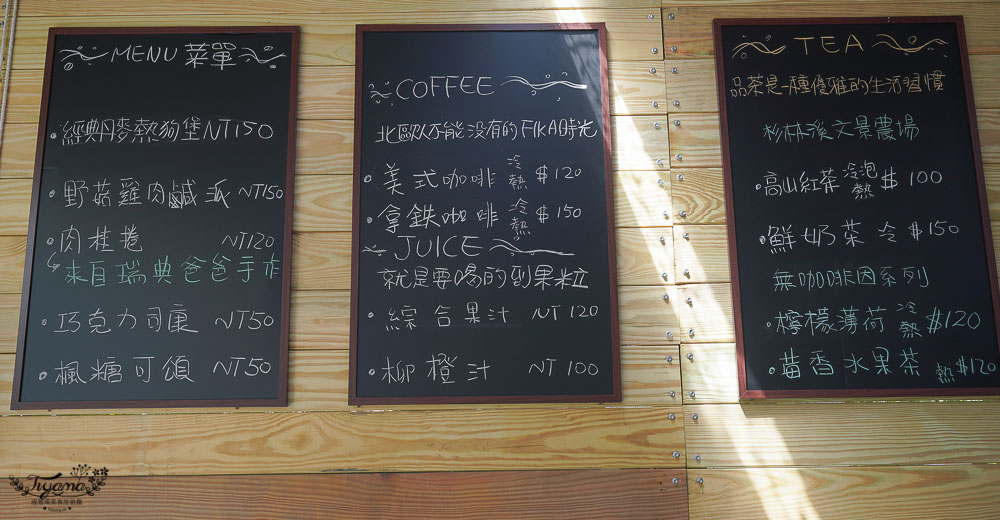 MENU 菜單
經典丹麥熱狗堡NT150
野菇雞肉鹹派 NT150
肉桂捲 NT120
來自瑞典爸爸手作
巧克力司康 NT50
楓糖可頌 NT50
COFFEE
北歐人不能沒有的FIKA時光
美式咖啡 冷熱 $120
拿鐵咖啡 冷熱 $150
JUICE
就是要喝的到果粒
綜合果汁 NT120
柳橙汁 NT100
TEA
品茶是一種優雅的生活習慣
杉林溪文景農場
高山紅茶 冷泡 熱 $100
鮮奶茶 冷 $150
無咖啡因系列
檸檬薄荷 冷熱 $120
茴香水果茶 熱 $120
Tiyama